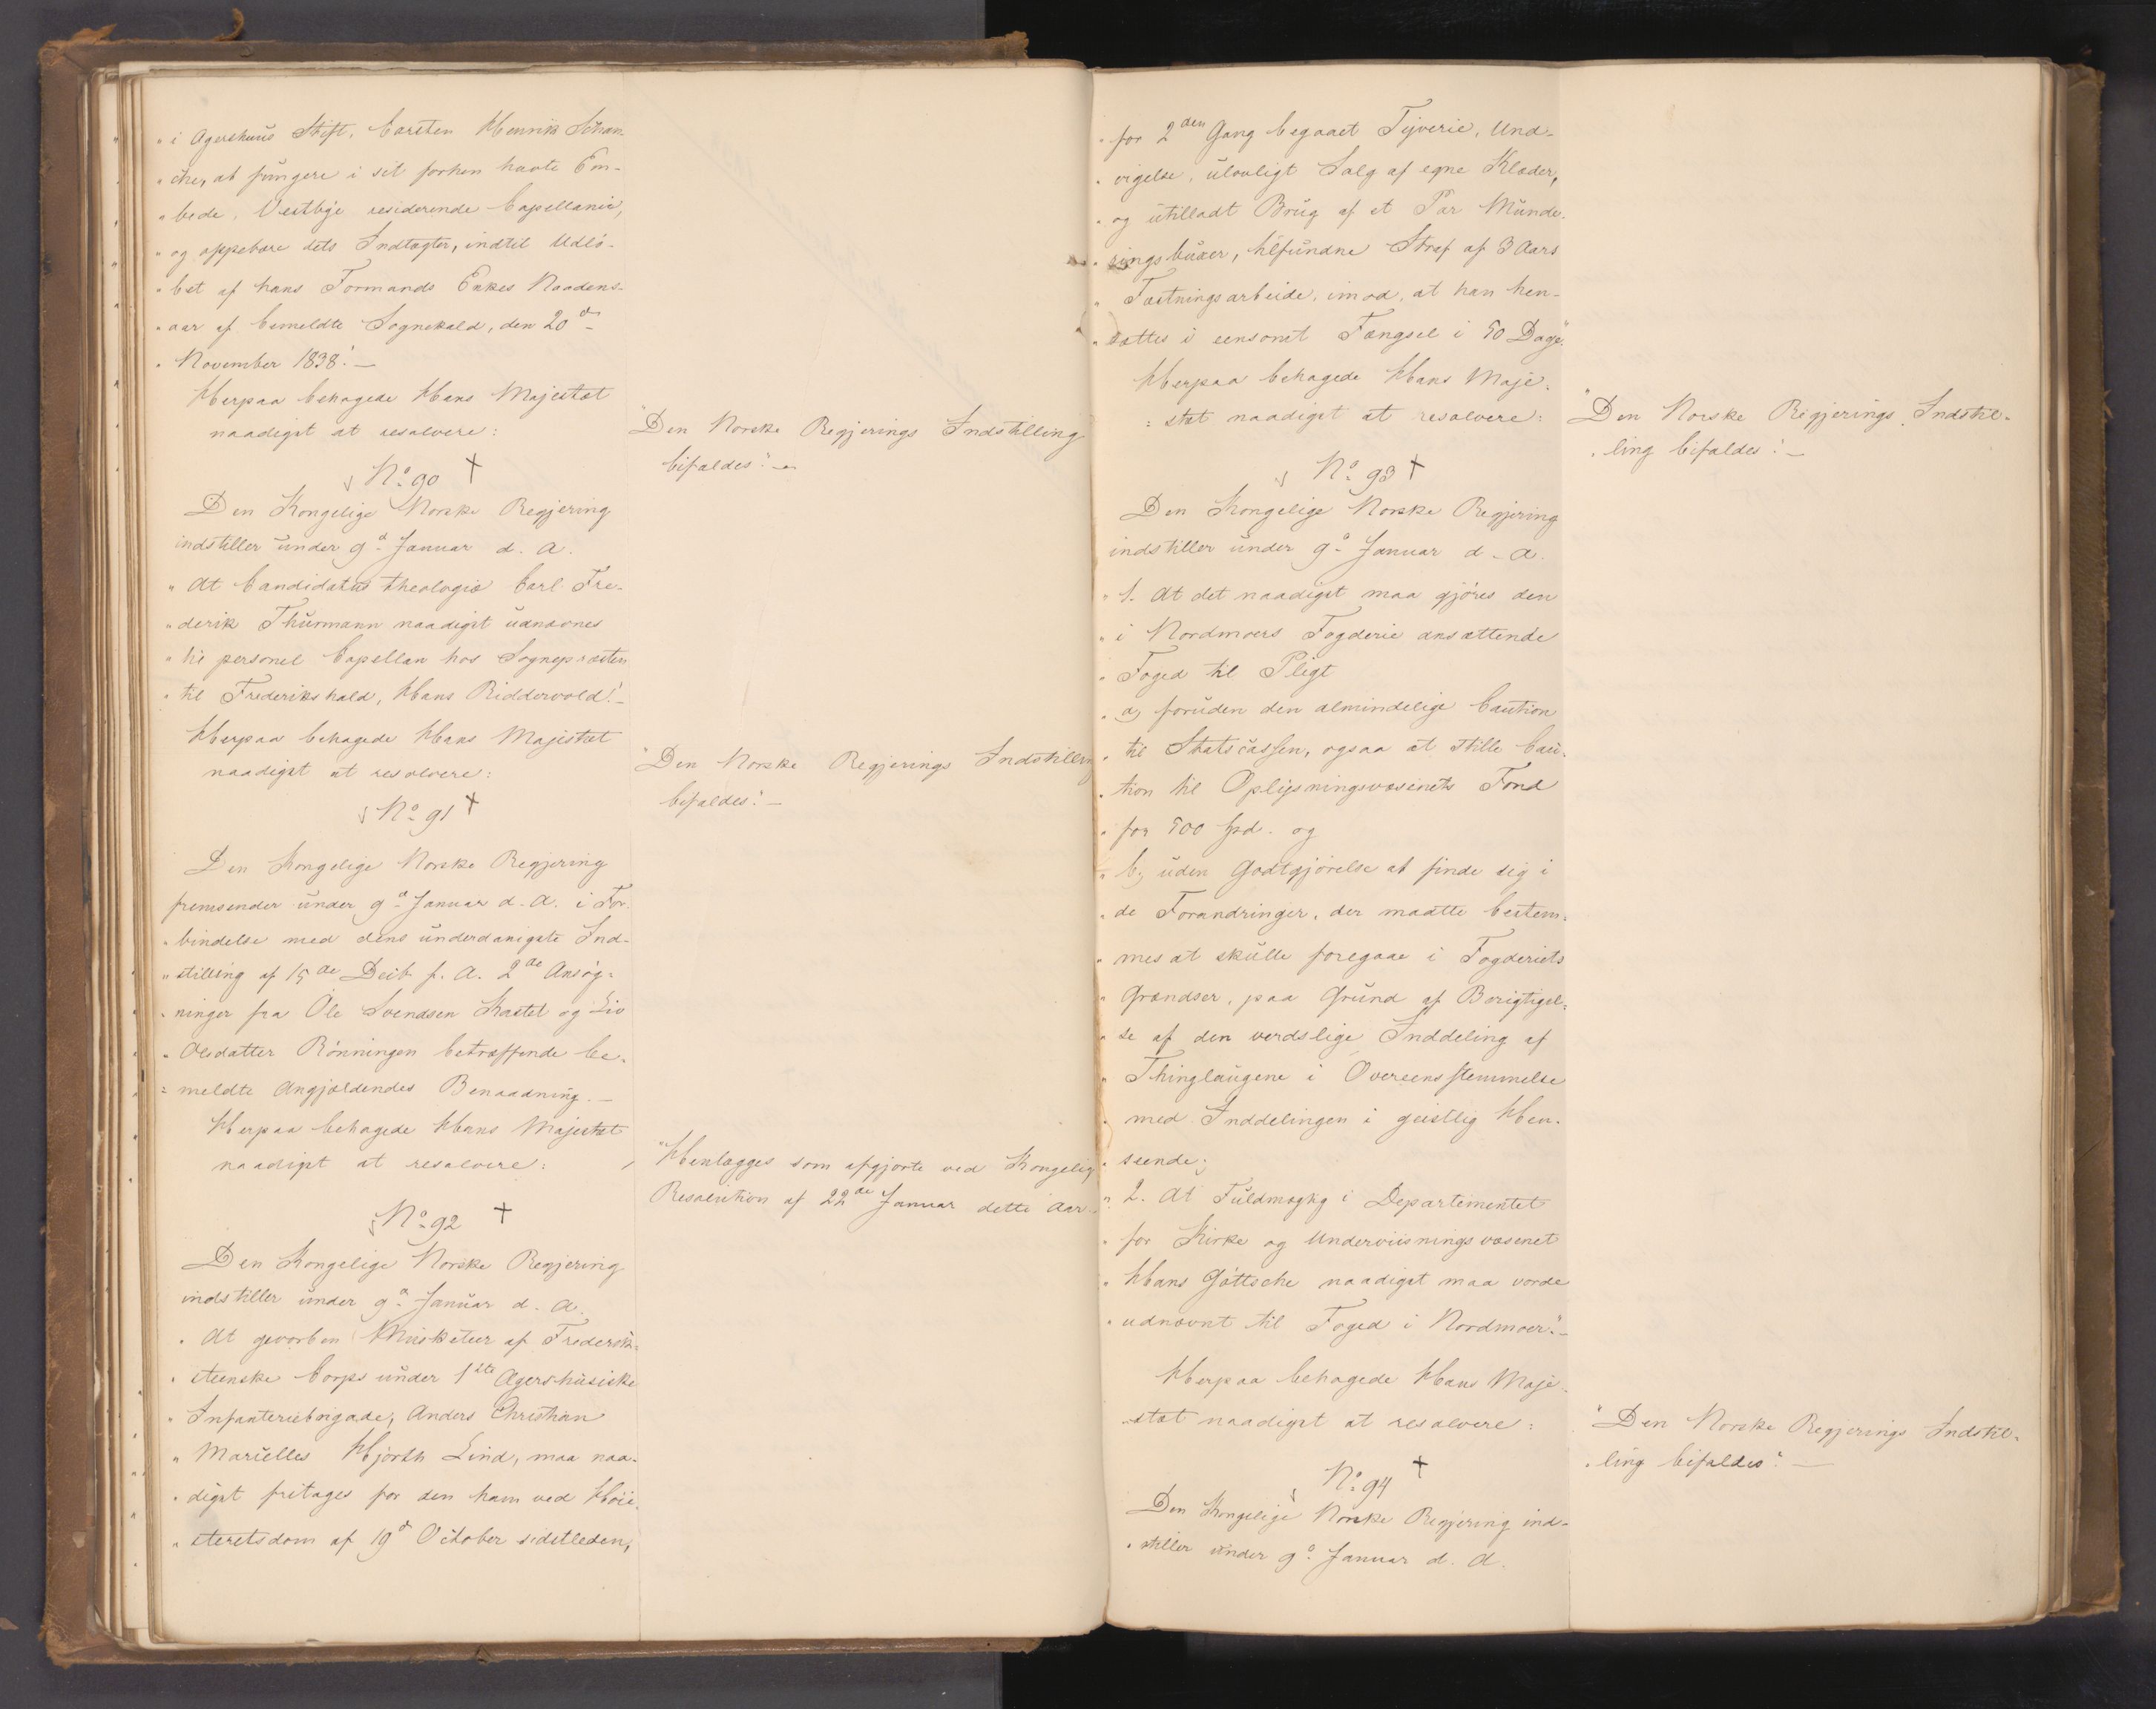 " i Agershuus Stift, Carsten Henrik Schan
" che, at fungere i sit forhen havte Em-
" bede, Vestbye residerende Capellanie,
" og oppebære dets Indtægter, indtil Udlö-
" bet af hans Formands Enkes Naadens-
" aar af bemeldte Sognekald, den 20de
" November 1838." —
Herpaa behagede Hans Majestæt
naadigst at resolvere:
"Den Norske Regjerings Indstilling
bifaldes." —
No 90 +
Den Kongelige Norske Regjering
indstiller under 9d Januar d. A.
" At Candidatus theologiæ Carl Fre-
" derik Thurmann naadigst udnævnes
" til personel Capellan hos Sognepræsten
" til Frederikshald, Hans Riddervold." —
Herpaa behagede Hans Majestæt
naadigst at resolvere:
"Den Norske Regjerings Indstilling
bifaldes." —
No 91 +
Den Kongelige Norske Regjering
fremsender under 9d Januar d. A. i For-
" bindelse med dens underdanigste Ind-
" stilling af 15de Decb. f. A. 2de Ansøg-
" ninger fra Ole Svendsen Kastet og Liv
" Olsdatter Rönningen betræffende be-
" meldte Angjældendes Benaadning. —
Herpaa behagede Hans Majestæt
naadigst at resolvere:
"Henlægges som afgjorte ved Kongelig
Resolution af 22de Januar dette Aar.
No 92 +
Den Kongelige Norske Regjering
indstiller under 9d Januar d. A.
" At gevorben Musketeer af Frederik-
" steenske Corps under 1ste Agershusiske
" Infanteriebrigade, Anders Christian
" Marielles Hjorth Lind, maa naa-
" digst fritages for den ham ved Höie-
" steretsdom af 19d October sidstleden,
" for 2den Gang begaaet Tyverie, Und-
" vigelse, ulovligt Salg af egne Klæder,
" og utilladt Brug af et Par Munde-
" ringsbuxer, tilfundne Straf af 3 Aars
" Fæstningsarbeide, imod, at han hen-
" sættes i eensomt Fængsel i 50 Dage."
Herpaa behagede Hans Maje-
stæt naadigst at resolvere:
"Den Norske Regjerings Indstil-
" ling bifaldes." —
No 93 +
Den Kongelige Norske Regjering
indstiller under 9d Januar d. A.
" 1. At det naadigst maa gjöres den
" i Nordmoers Fogderie ansættende
" Foged til Pligt
" a, foruden den almindelige Caution
" til Statscassen, ogsaa at stille Cau-
" tion til Oplysningsvæsenets Fond
" for 500 Spd. og
" b, uden Godtgjörelse at finde sig i
" de Forandringer, der maatte bestem-
" mes at skulle foregaae i Fogderiets
" Grændser, paa Grund af Berigtigel-
" se af den verdslige Inddeling af
" Thinglaugene i Overeensstemmelse
" med Inddelingen i geistlig Hen-
" seende;
" 2. At Fuldmægtig i Departementet
" for Kirke og Underviisningsvæsenet
" Hans Göttsche naadigst maa vorde
" udnævnt til Foged i Nordmoer." —
Herpaa behagede Hans Maje-
stæt naadigst at resolvere:
"Den Norske Regjerings Indstil-
" ling bifaldes." —
No 94 +
Den Kongelige Norske Regjering ind-
" stiller under 9d Januar d. A.